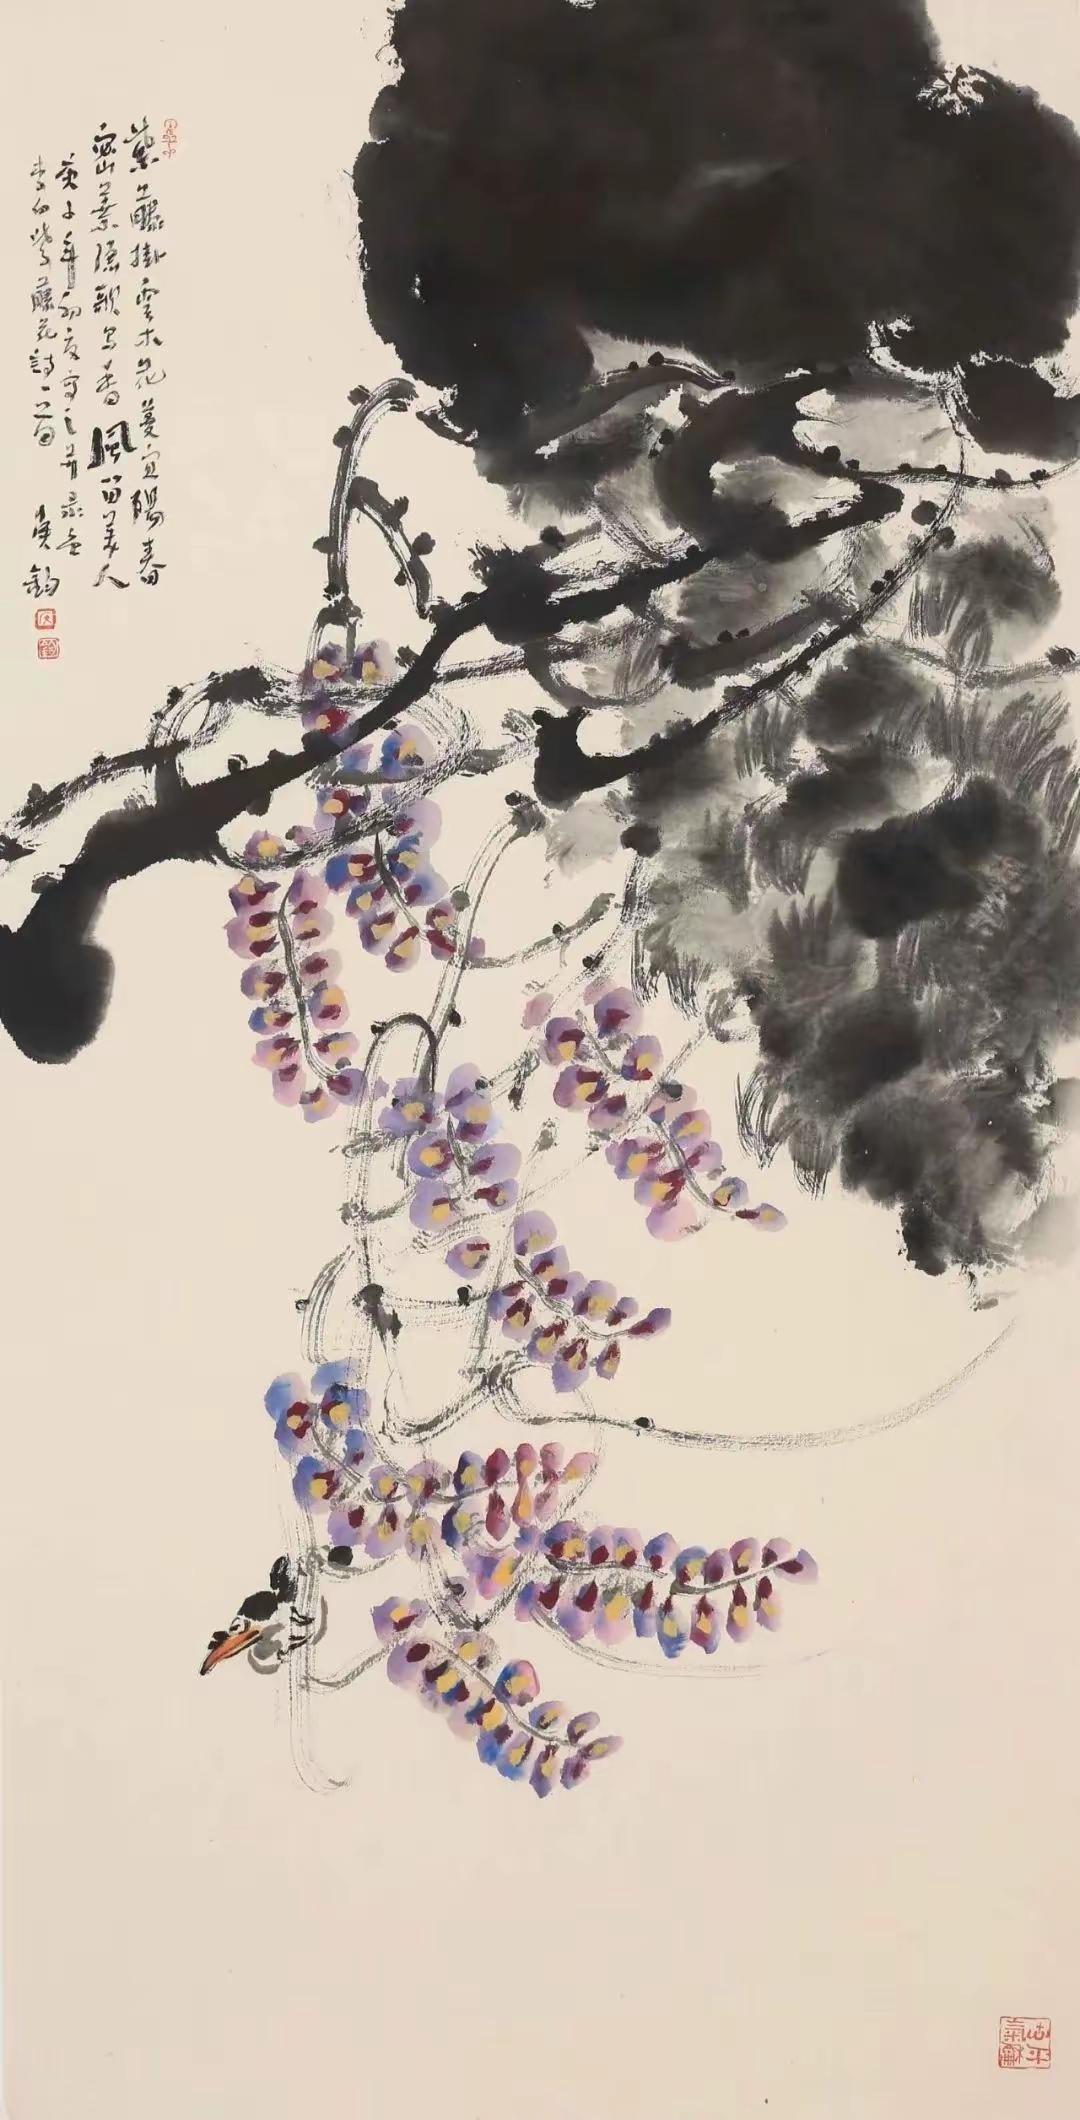 紫藤掛雲木花蔓宜陽春
密葉隱歌鳥香風留美人
庚子年初夏寫之并录
李白紫藤花詩一首 鈞
心平氣龢